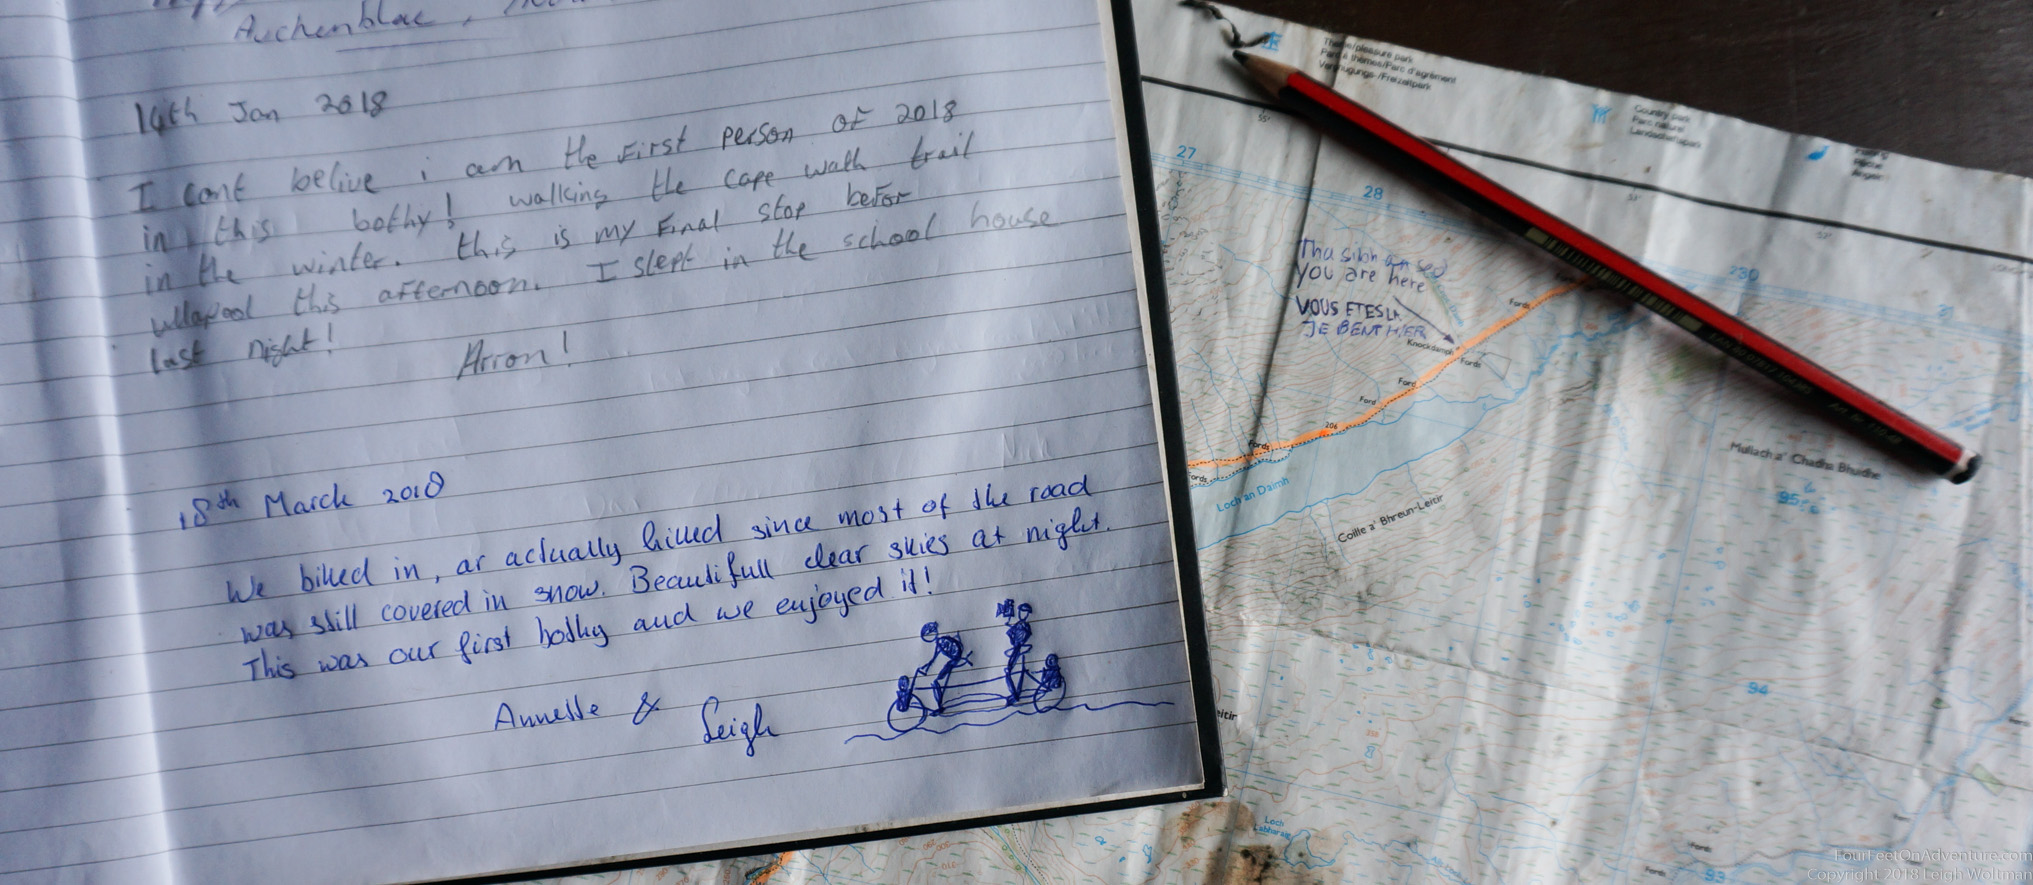 Auchenblae,
14th Jan 2018
I cant belive i am the First person of 2018
in this bothy! walking the cape wath trail
in the winter. this is my Final stop befor
ullapool this afternoon. I slept in the school house
last night!
Arron!
18th March 2018
We biked in, or actually hiked since most of the road
was still covered in snow. Beautifull clear skies at night.
This was our first bothy and we enjoyed it!
Annette & Leigh
Theme/pleasure park
Parc à thèmes/Parc d'agrément
Vergnügungs-/Freizeitpark
Country park
Parc naturel
Landschaftspark
27
28
230
Tha sibh an seo
you are here
VOUS ETES LA
JE BENT HIER
Knockdamph
Fords
Fords
Ford
Ford
206
Fords
Loch an Daimh
Coille a' Bhreun-Leitir
Mullach a' Chadha Bhuidhe
95
94
Loch
93
Fords
FourFeetOnAdventure.com
Copyright 2018 Leigh Woltman